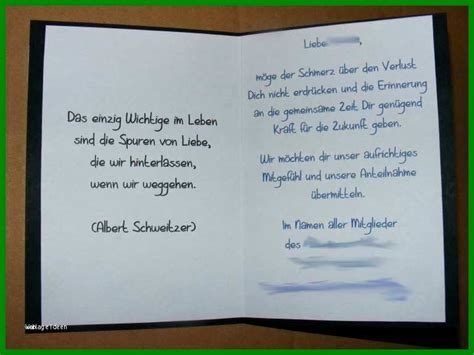 Das einzig Wichtige im Leben
sind die Spuren von Liebe,
die wir hinterlassen,
wenn wir weggehen.
(Albert Schweitzer)
Liebe
möge der Schmerz über den Verlust
Dich nicht erdrücken und die Erinnerung
an die gemeinsame Zeit Dir genügend
Kraft für die Zukunft geben.
Wir möchten dir unser aufrichtiges
Mitgefühl und unsere Anteilnahme
übermitteln.
Im Namen aller Mitglieder
des